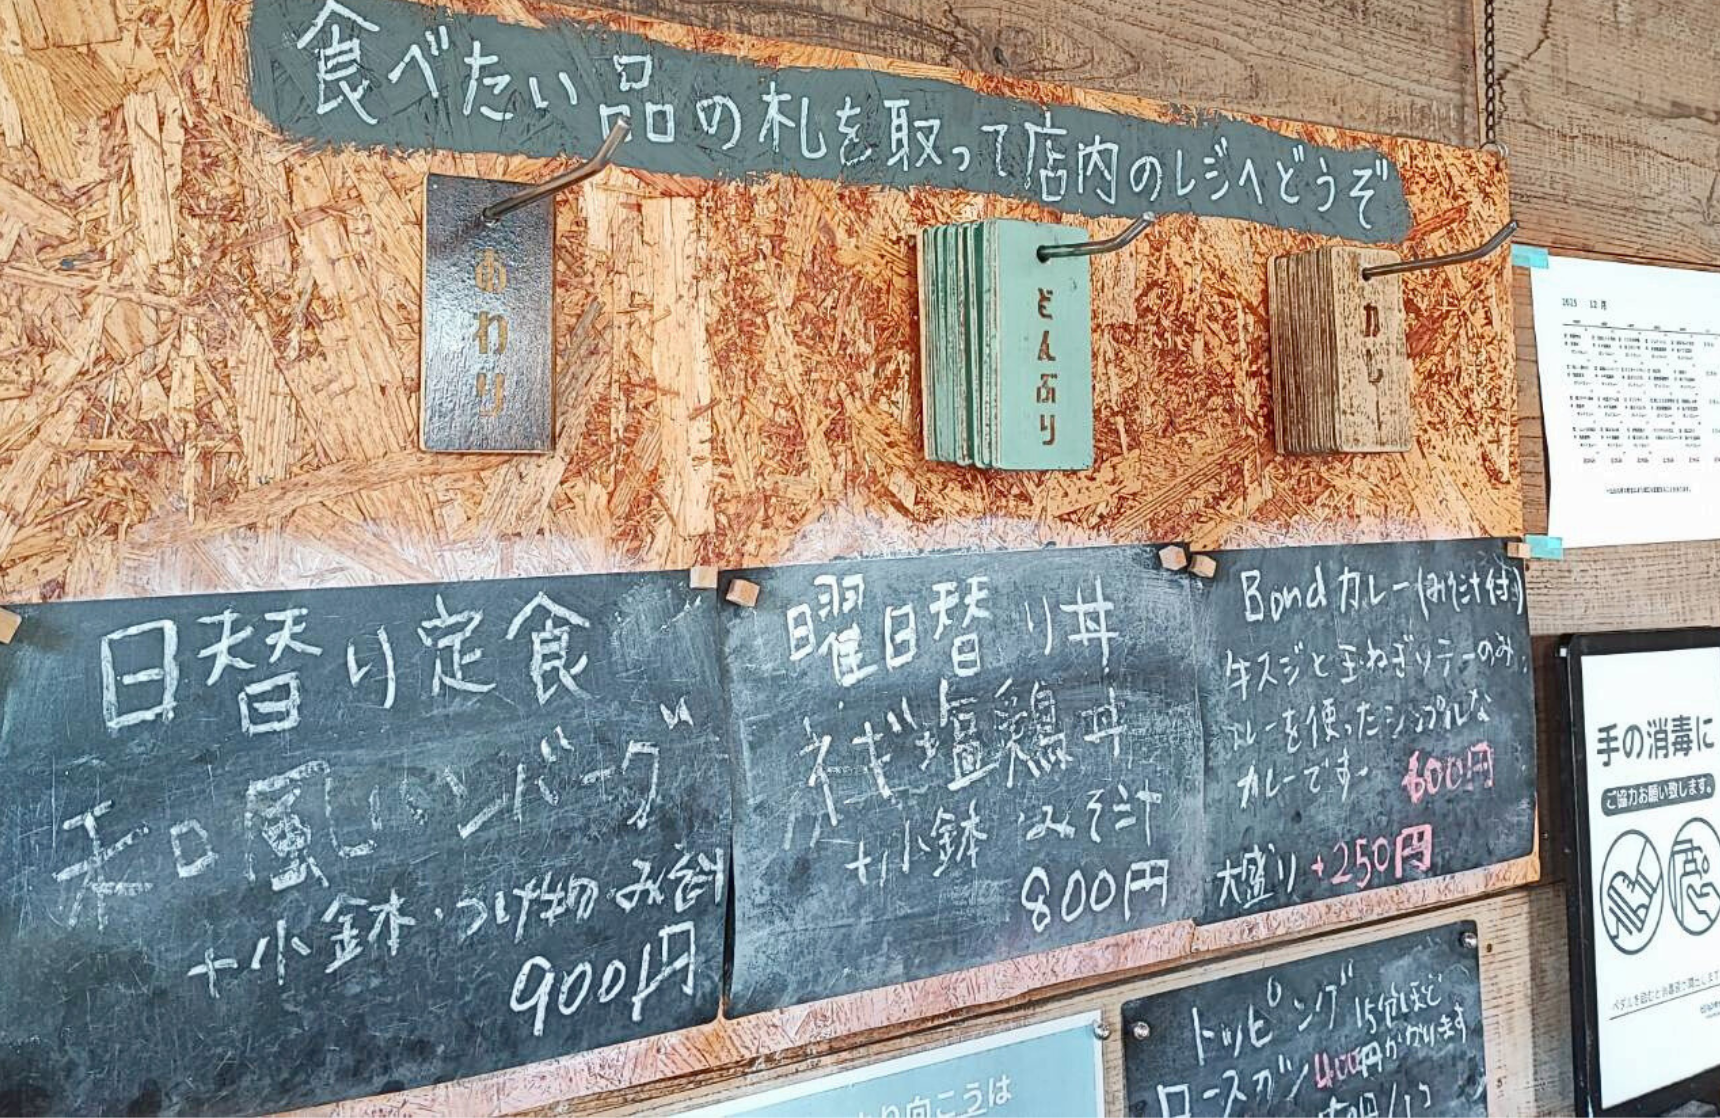 食べたい品の札を取って店内のレジへどうぞ
おわり
どんぶり
カレー
2025 12月
日替り定食
和風ハンバーグ
+小鉢・つけ物・みそ汁
900円
曜日替り丼
ネギ塩鶏丼
+小鉢 みそ汁
800円
Bondカレー(みそ汁付)
牛スジと玉ねぎソテーのみ
ルーを使ったシンプルな
カレーです 600円
大盛り +250円
手の消毒に
ご協力お願い致します。
トッピング 15分ほど
かかります
ロースカツ 400円
り向こうは